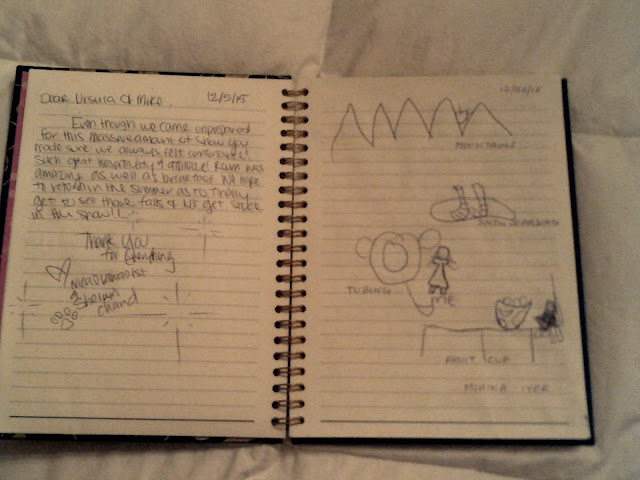 Dear Ursula & Mike, 12/5/15
Even though we came unprepared
for this massive amount of snow you
made sure we always felt comfortable!
Such great hospitality & attitude! Room was
amazing as well as breakfast. We hope
to return in the summer as to finally
get to see those falls & not get stuck
in the snow!!
Thank you
for Everything
&
chand
MOUNTAINS
SNOWBOARDING
TUBING
ME
FRUIT CUP
MIHIKA IYER